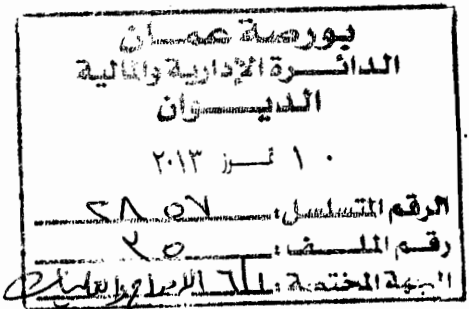 بورصة عمان
الدائرة الإدارية والمالية
الديوان
١٠ تموز ٢٠١٣
الرقم المتسلسل: ٢٨٥٧
رقم الملف: ٣٥
الجهة المختصة: الإدراج والعمليات